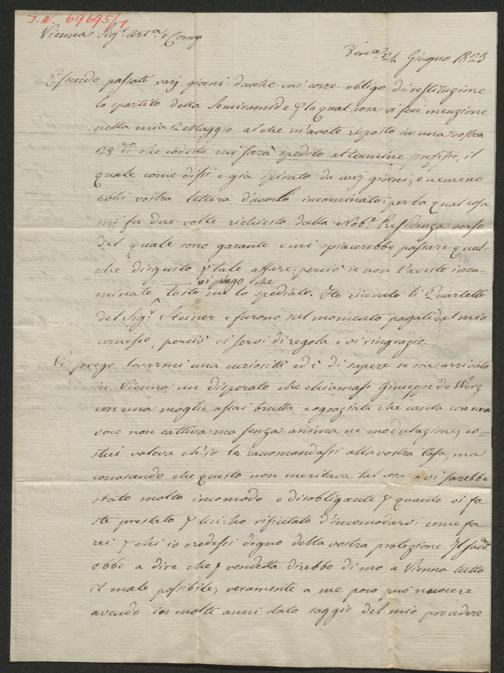 I.N. 69695/1
Vienna Sigri Arta. e Comp.
Ven.a 24 Giugno 1823
Essendo passati varj giorni dacche mi corre obbligo di restituzione
lo spartito della Semiramide della qual cosa vi feci menzione
nella mia 12 Maggio al che m'avete risposto in una vostra
che questo mi sarà spedito al termine prefisso, il
quale come dissi e già spirato da varj giorni, e nemeno
colli vostra lettera d'averlo incaminato; per la qual cosa
mi fu due volte richiesto dalla Nob.e Presidenza verso
del quale sono garante e mi spiacerebbe passare qual
che disgusto p tale affare, perciò se non l'avete inca
minato, tosto vi prego che me lo spediate. Ho ricevuto li Quartetti
del Sigr Steiner e furono sul momento pagati dal mio
comesso, perciò vi servi di regola e vi ringrazio.
Vi prego levarmi una curiosità ed è di sapere se sia arrivato
in Vienna un disperato che chiamasi Giuseppe de
con una moglie assai brutta e sgraziata che canta con una
voce non cattiva ma senza anima ne modulazione, co-
stui voleva ch'io lo racomandassi alla vostra Casa, ma
conoscendo che questo non meritava tal cosa e vi sarebbe
stato molto incomodo e disobligante p quanto vi fo
ste prestato p lui, ho rifiutato d'incomodarvi come fa
rei p chi io credessi degno della vostra protezione. Il
ebbe a dire che p vendetta direbbe di me a Vienna tutto
il male possibile; veramente a me poco può nuocere
avendo in molti anni dato saggio del mio procedere